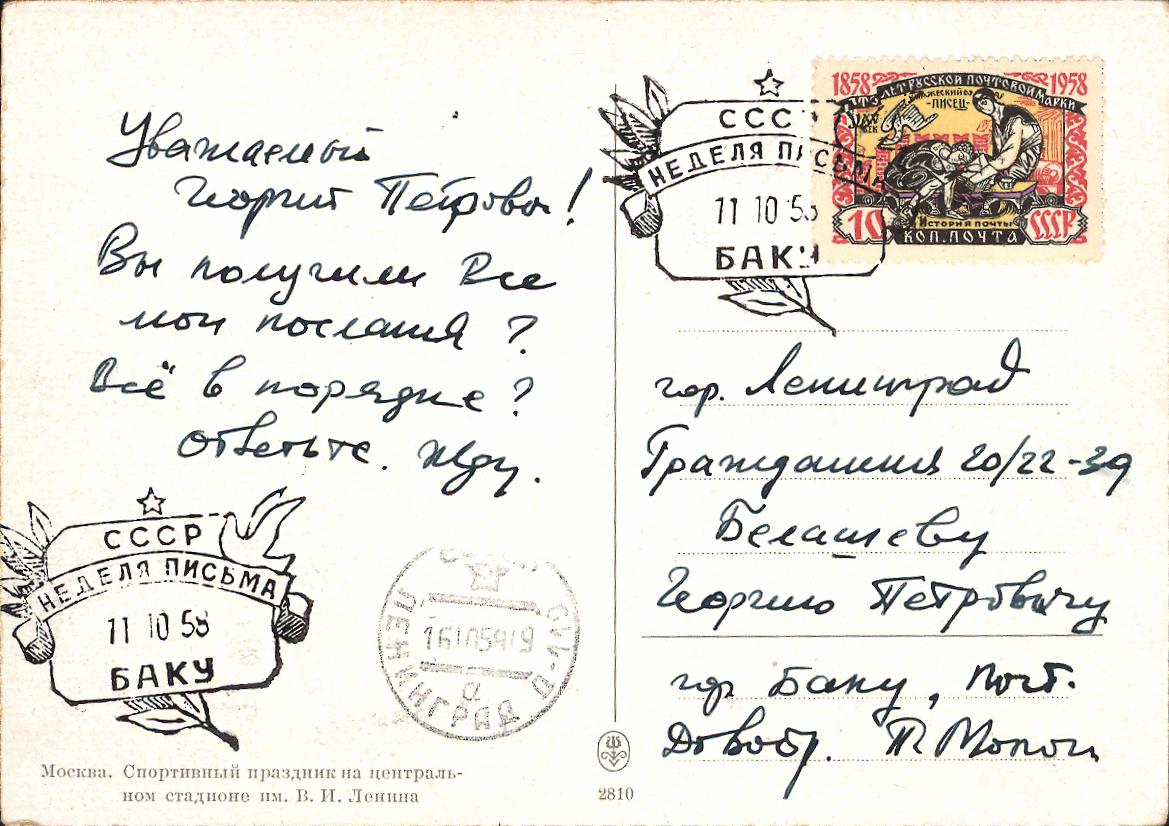 Уважаемый
Георгий Петрович!
Вы получили все
мои послания?
Всё в порядке?
Ответьте. Жду.
СССР
НЕДЕЛЯ ПИСЬМА
11 10 58
БАКУ
ЛЕНИНГРАД
Москва. Спортивный праздник на централь-
ном стадионе им. В. И. Ленина
2810
СССР
НЕДЕЛЯ ПИСЬМА
11 10 58
БАКУ
1858 1958
СТО ЛЕТ РУССКОЙ ПОЧТОВОЙ МАРКИ
-ПИСЕЦ-
ВЕК
История почты
10 КОП. ПОЧТА СССР
гор. Ленинград
Гражданская 20/22-39
Белашеву
Георгию Петровичу
гор Баку, Почт.